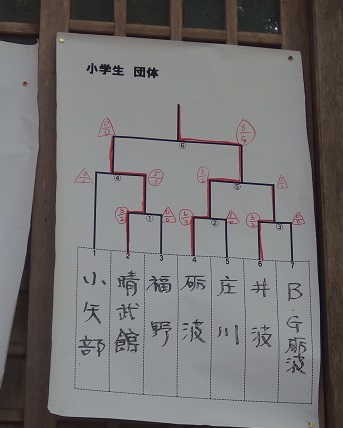 小学生 団体
⑥
④
⑤
①
②
③
1 2 3 4 5 6 7
小矢部
晴武館
福野
砺波
庄川
井波
B・G砺波